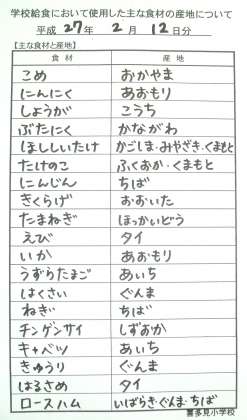 学校給食において使用した主な食材の産地について
平成 27 年 2 月 12 日分
【主な食材と産地】
食材 産地
こめ おかやま
にんにく あおもり
しょうが こうち
ぶたにく かながわ
ほししいたけ かごしま・みやざき・くまもと
たけのこ ふくおか・くまもと
にんじん ちば
きくらげ おおいた
たまねぎ ほっかいどう
えび タイ
いか あおもり
うずらたまご あいち
はくさい ぐんま
ねぎ ちば
チンゲンサイ しずおか
キャベツ あいち
きゅうり ぐんま
はるさめ タイ
ロースハム いばらき・ぐんま・ちば
喜多見小学校